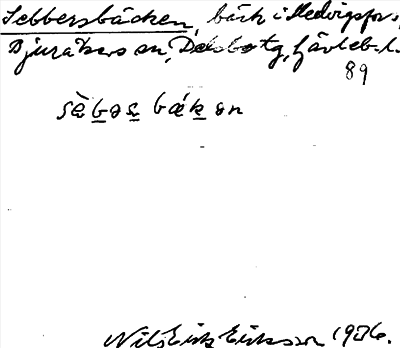 Sebbersbäcken, bäck i Hedvigsfors,
Bjuråkers sn, Delsbo tg, Gävleb. l.
89
sèbǝs bǽkǝn
Nils Erik Eriksson 1936.